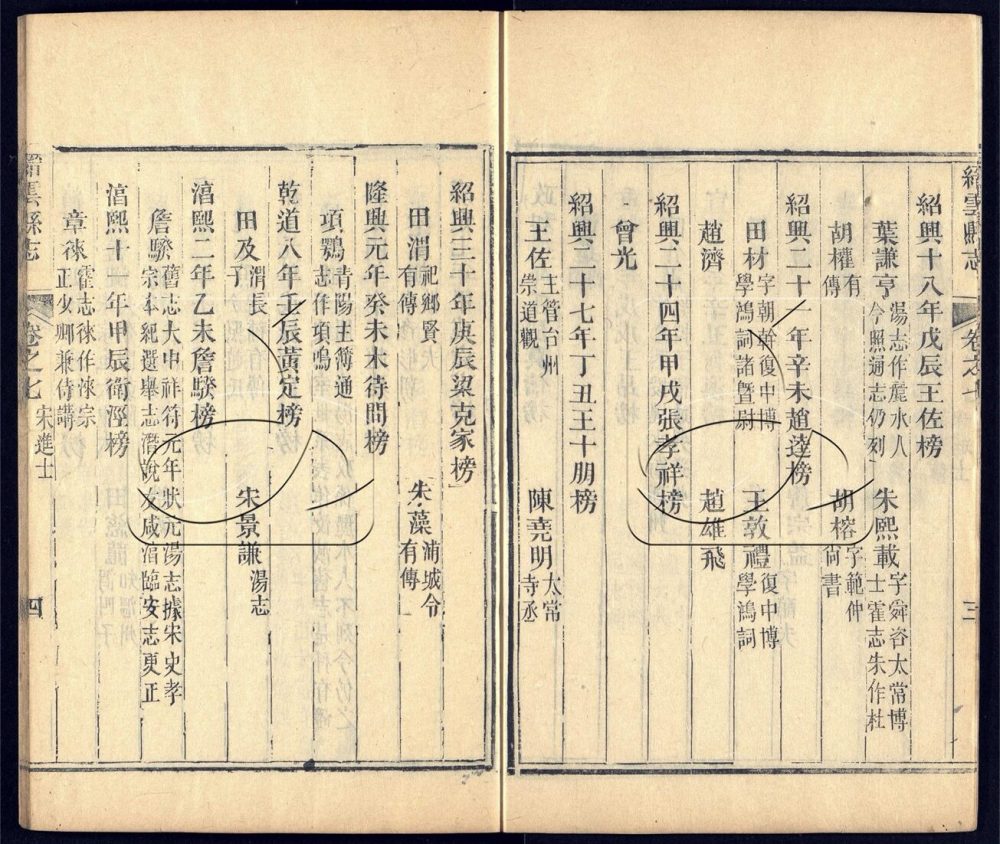 縉雲縣志
卷之七
三
紹興十八年戊辰王佐榜
葉謙亨 湯志作麗水人今照通志仍列 朱熙載 字舜咨太常博士霍志朱作杜
胡權 有傳 胡榕 字範仲尚書
紹興二十一年辛未趙逵榜
田材 字朝幹復中博學鴻詞諸曁尉 王敦禮 復中博學鴻詞
趙濟 趙雄飛
紹興二十四年甲戌張孝祥榜
曾光
紹興二十七年丁丑王十朋榜
王佐 主管台州崇道觀 陳堯明 太常寺丞
紹興三十年庚辰梁克家榜
田渭 祀鄉賢有傳 朱藻 浦城令有傳
隆興元年癸未木待問榜
項鶚 青陽主簿通志作項鳴
乾道八年壬辰黃定榜
田及 渭長子 朱景謙 湯志
淳熙二年乙未詹騤榜
詹騤 舊志大中祥符元年狀元湯志據宋史孝宗本紀選舉志潛說友咸淳臨安志更正
淳熙十一年甲辰衛涇榜
章徠 霍志徠作淶宗正少卿兼侍講
縉雲縣志
卷之七
宋進士
四